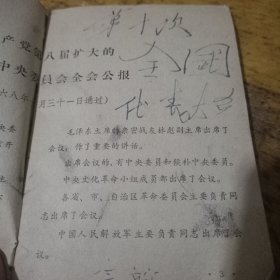 第十次
全国
代表大会
产党第八届扩大的
中央委员会全会公报
六八年
月三十一日通过）
毛泽东主席和亲密战友林彪副主席出席了
会议，作了重要的讲话。
出席会议的，有中央委员和候补中央委员。
中央文化革命小组成员都出席了会议。
各省、市、自治区革命委员会主要负责同
志出席了会议。
中国人民解放军主要负责同志出席了会
议。
· 3 ·